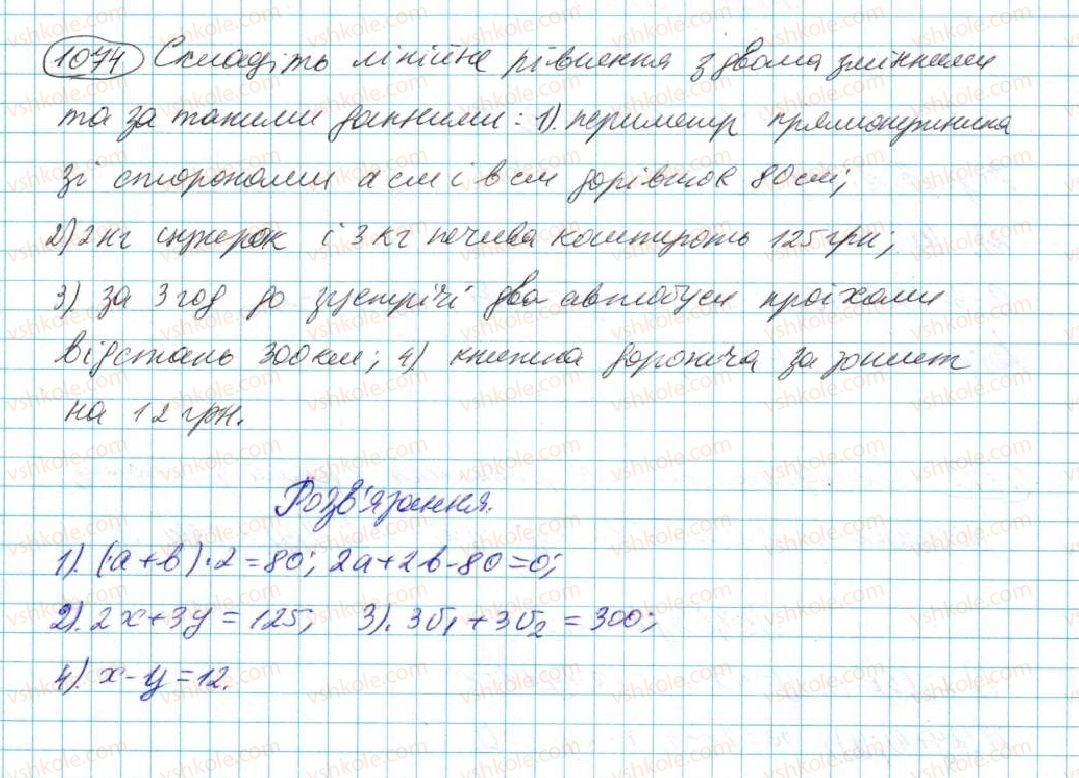 1074 Складіть лінійне рівняння з двома змінними
та за такими данними: 1). периметр прямокутника
зі сторонами a см і b см дорівнює 80 см;
2) 2 кг цукерок і 3 кг печива коштують 125 грн;
3) за 3 год до зустрічі два автобуси проїхали
відстань 300 км; 4) книжка дорожча за зошит
на 12 грн.
Розв'язання.
1). (a+b)·2=80; 2a+2b-80=0;
2). 2x+3y=125; 3). 3υ₁+3υ₂=300;
4). x-y=12.